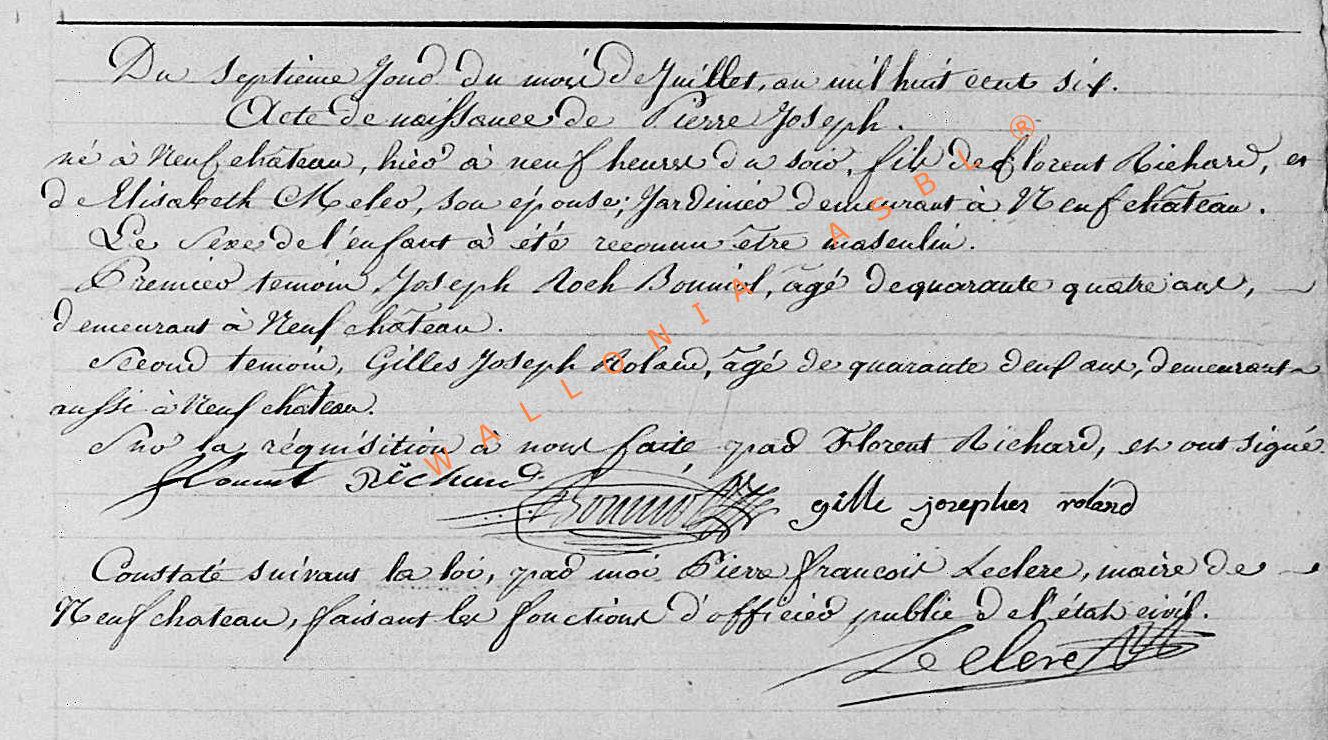 Du septieme Jour du mois de Juillet, an mil huit cent six.
Acte de naissance de Pierre Joseph.
né à Neufchâteau, hier à neuf heures du soir, fils de florent Richard, et
de Elisabeth Meler, son épouse; Jardinier demeurant à Neufchâteau.
Le sexe de l'enfant à été reconnu être masculin.
Premier temoin, Joseph Roch Bonniol, âgé de quarante quatre ans,
demeurant à Neufchâteau.
Second temoin, Gilles Joseph Roland, âgé de quarante deux ans, demeurant
aussi à Neufchâteau.
Sur la réquisition à nous faite par Florent Richard, et ont signé.
florent Richard Bonniol gille josephes roland
Constaté suivant la loi, par moi Pierre françois Leclerc, maire de
Neufchateau, faisant les fonctions d'officier public de l'état civil.
Leclerc
WALLONIA ASBL ®